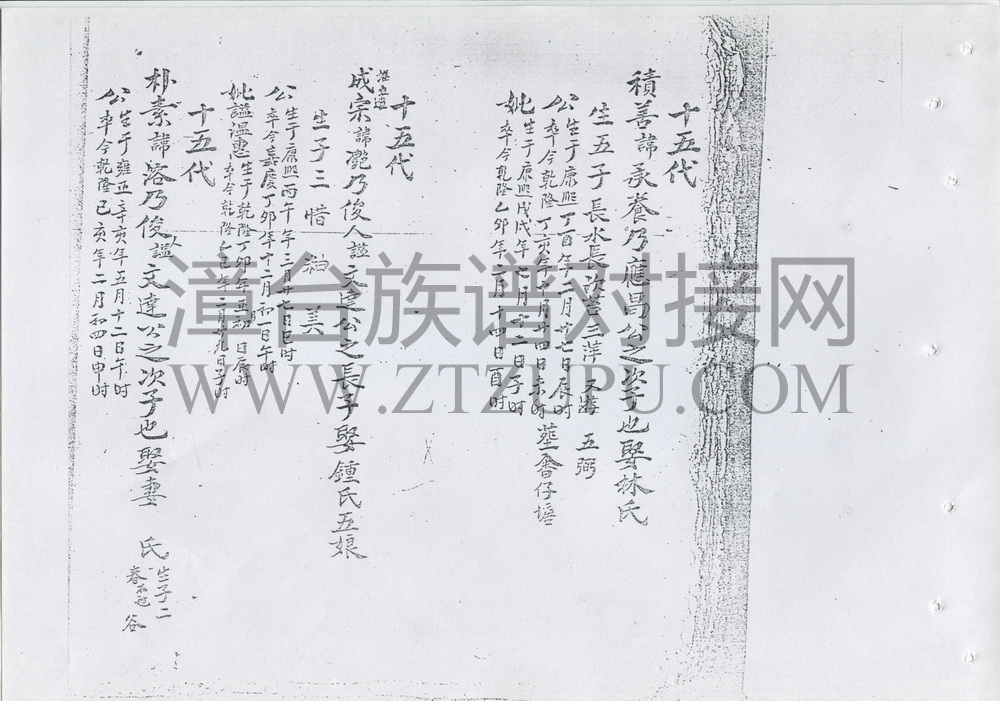 十五代
積善諱承養乃應昌公之次子也娶林氏
生五子 長水 長 次 三萍 又 五弼
公生于康熙丁酉年二月廿七日辰時
卒今乾隆丁亥年 月廿四日未時 番仔塔
妣生于康熙戊戌年七月十二日子時
卒今乾隆乙卯年二月十四日酉時
十五代
成宗諱 乃俊人謚文達公之長子娶鍾氏五娘
生子三 惜 美
公生于康熙丙午年三月廿七日巳時
卒今嘉慶丁卯年十二月初一日午時
妣謚温惠生于乾隆丁卯年 初 日辰時
卒今乾隆乙巳年二月廿九日子時
十五代
朴素諱溶乃俊人謚文達公之次子也娶妻 氏生子二 春 谷
公生于雍正辛亥年五月十二日午時
卒今乾隆己亥年二月初四日申時
漳台族谱对接网
WWW.ZTZUPU.COM